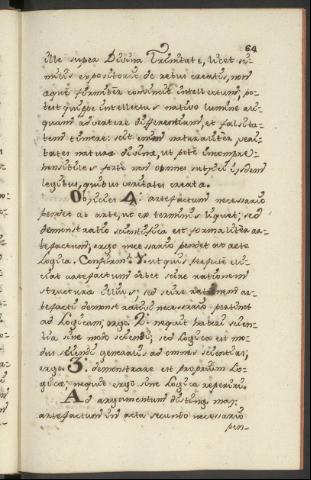 64
ille super Divina Trinitate, licet si-
milis expositoriae de rebus creatis, non
aque firmiter convincit intellectum, po-
test quippe intellectus nativo lumine ali-
quam advertere differentiam, et falsita-
tem timere: scit enim naturaliter, veri-
tates naturae divinae, ut pote incompre-
hensibiles forte non omnes subjici iisdem
legibus, quibus veritates creatae.
Objicies 4. artefactum necessario
pendet ab arte, ut ex terminis liquet; sed
demonstratio scientifica est formaliter ar-
tefactum, ergo necessario pendet ab arte
Logica. Confirm. 1. ut quis perfecte sci-
at artefactum debet scire rationem
structurae illius; sed scire rationem ar-
tefacti demonstrationis necessario pertinet
ad Logicam, ergo. 2. nequit haberi scien-
tia sine modo sciendi; sed Logica est mo-
dus sciendi generalis ad omnes scientias,
ergo. 3. demonstrare est proprium Lo-
gicae, nequit ergo sine Logica reperiri.
Ad argumentum disting. maj.
artefactum in actu secundo necessario
pen-